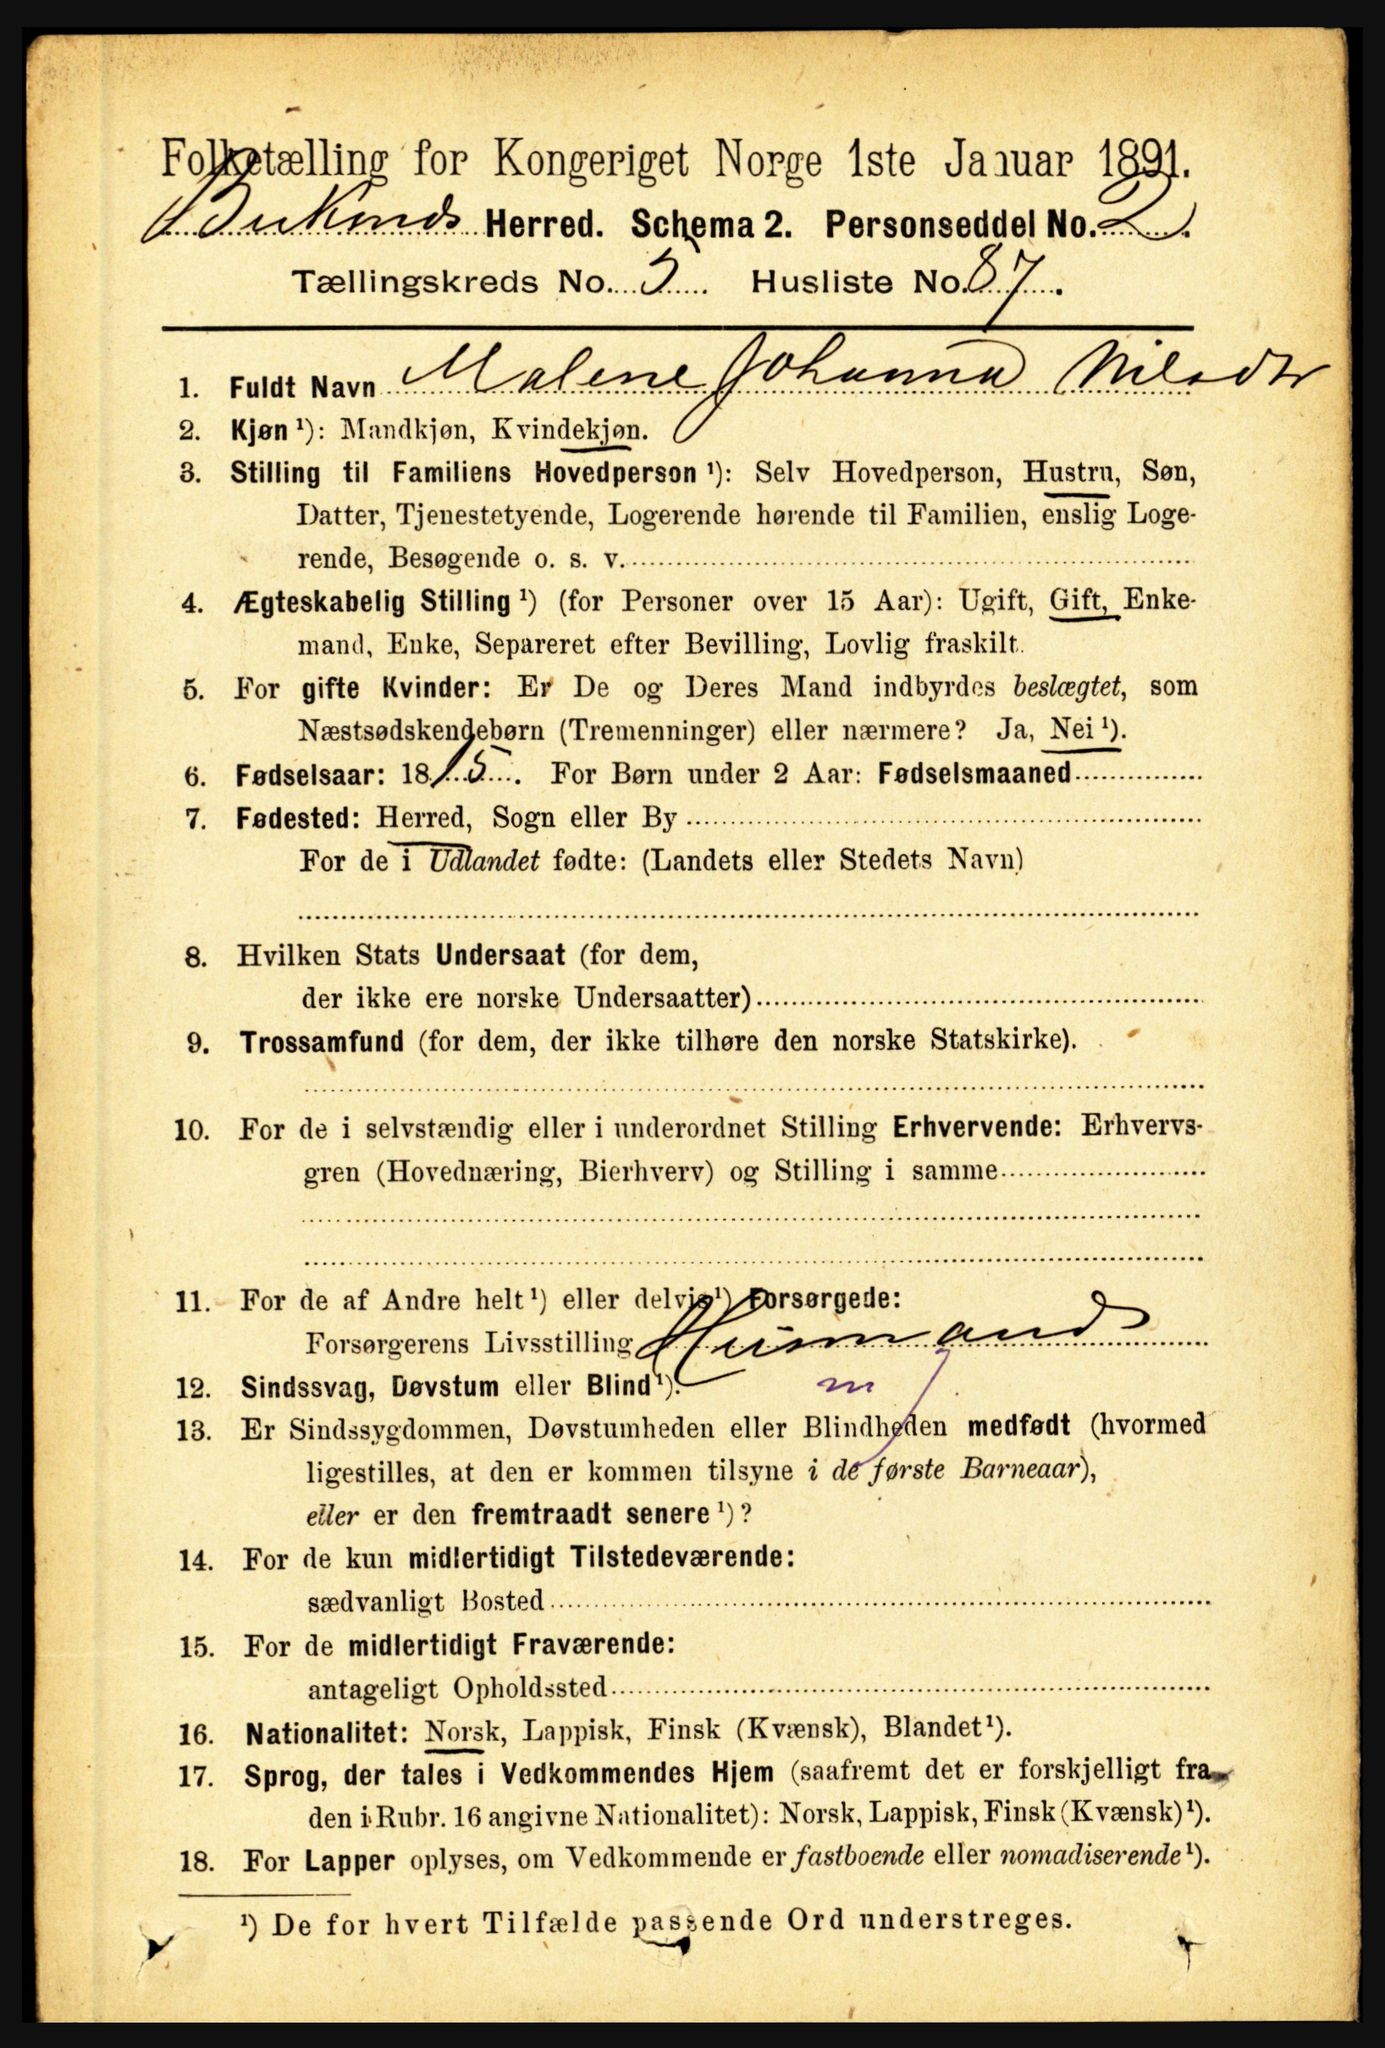 Folketælling for Kongeriget Norge 1ste Januar 1891.
Herred. Schema 2. Personseddel No. 2.
Tællingskreds No. 5. Husliste No. 87.
1. Fuldt Navn Malene Johanna Nilsdtr
2. Kjøn ¹): Mandkjøn, Kvindekjøn.
3. Stilling til Familiens Hovedperson ¹): Selv Hovedperson, Hustru, Søn,
Datter, Tjenestetyende, Logerende hørende til Familien, enslig Loge-
rende, Besøgende o. s. v.
4. Ægteskabelig Stilling ¹) (for Personer over 15 Aar): Ugift, Gift, Enke-
mand, Enke, Separeret efter Bevilling, Lovlig fraskilt.
5. For gifte Kvinder: Er De og Deres Mand indbyrdes beslægtet, som
Næstsødskendebørn (Tremenninger) eller nærmere? Ja, Nei ¹).
6. Fødselsaar: 1815. For Børn under 2 Aar: Fødselsmaaned
7. Fødested: Herred, Sogn eller By
For de i Udlandet fødte: (Landets eller Stedets Navn)
8. Hvilken Stats Undersaat (for dem,
der ikke ere norske Undersaatter)
9. Trossamfund (for dem, der ikke tilhøre den norske Statskirke).
10. For de i selvstændig eller i underordnet Stilling Erhvervende: Erhvervs-
gren (Hovednæring, Bierhverv) og Stilling i samme
11. For de af Andre helt ¹) eller delvis ¹) Forsørgede:
Forsørgerens Livsstilling Husmand
12. Sindssvag, Døvstum eller Blind ¹).
13. Er Sindssygdommen, Døvstumheden eller Blindheden medfødt (hvormed
ligestilles, at den er kommen tilsyne i de første Barneaar),
eller er den fremtraadt senere ¹)?
14. For de kun midlertidigt Tilstedeværende:
sædvanligt Bosted
15. For de midlertidigt Fraværende:
antageligt Opholdssted
16. Nationalitet: Norsk, Lappisk, Finsk (Kvænsk), Blandet ¹).
17. Sprog, der tales i Vedkommendes Hjem (saafremt det er forskjelligt fra
den i Rubr. 16 angivne Nationalitet): Norsk, Lappisk, Finsk (Kvænsk) ¹).
18. For Lapper oplyses, om Vedkommende er fastboende eller nomadiserende ¹).
¹) De for hvert Tilfælde passende Ord understreges.